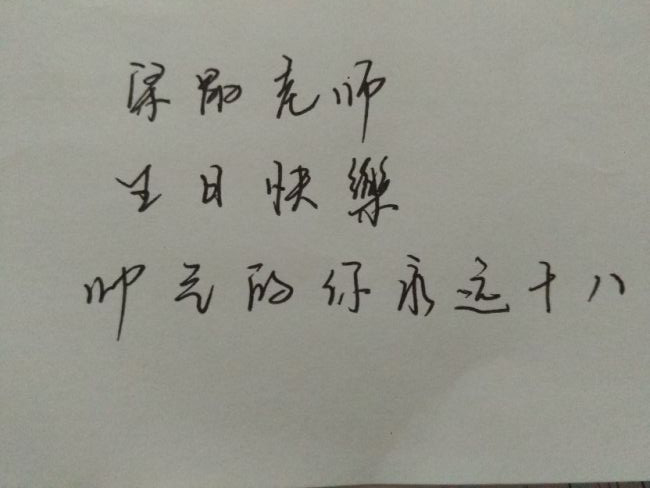 梁老师
生日快樂
帅气的你永远十八